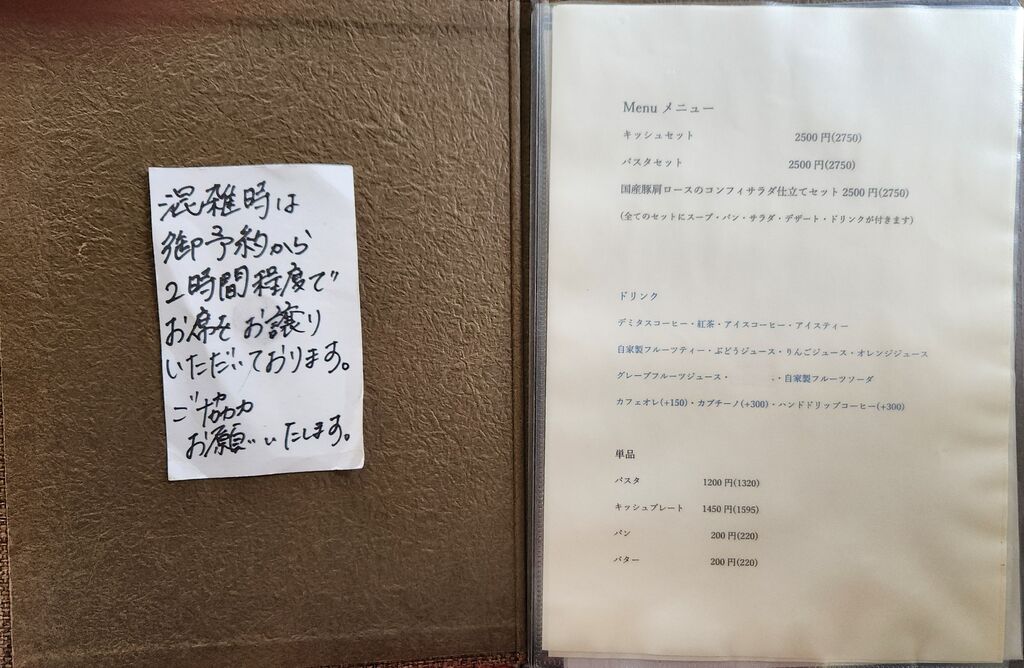 混雑時は
御予約から
2時間程度で
お席をお譲り
いただいております。
ご協力
お願いいたします。
Menu メニュー
キッシュセット 2500円(2750)
パスタセット 2500円(2750)
国産豚肩ロースのコンフィサラダ仕立てセット 2500円(2750)
(全てのセットにスープ・パン・サラダ・デザート・ドリンクが付きます)
ドリンク
デミタスコーヒー・紅茶・アイスコーヒー・アイスティー
自家製フルーツティー・ぶどうジュース・りんごジュース・オレンジジュース
グレープフルーツジュース・ ・自家製フルーツソーダ
カフェオレ(+150)・カプチーノ(+300)・ハンドドリップコーヒー(+300)
単品
パスタ 1200円(1320)
キッシュプレート 1450円(1595)
パン 200円(220)
バター 200円(220)